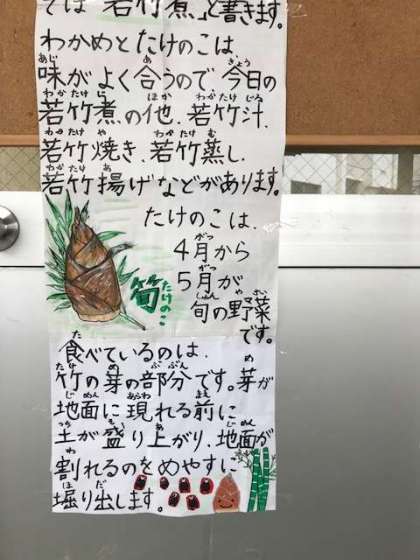 そば「若竹煮」と書きます。
わかめとたけのこは
味がよく合うので、今日の
若竹煮の他、若竹汁、
若竹焼き、若竹蒸し、
若竹揚げなどがあります。
たけのこは、
4月から
5月が
旬の野菜
です。
筍
たけのこ
食べているのは、
竹の芽の部分です。芽が
地面に現れる前に
土が盛り上がり、地面が
割れるのをめやすに
堀り出します。